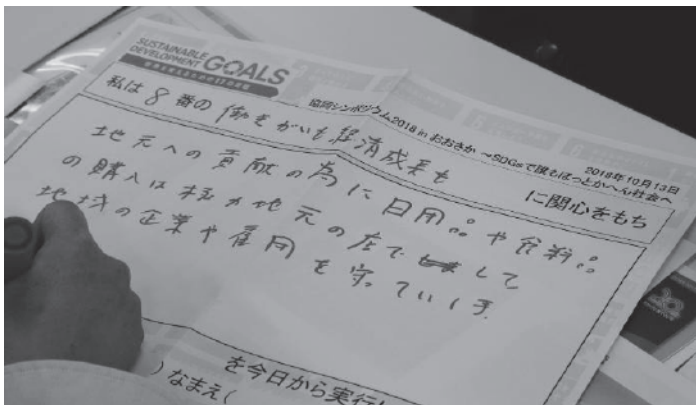 SUSTAINABLE
DEVELOPMENT GOALS
協同シンポジウム2018 in おおさか ~SDGsで誰もほっとかへん社会へ
2018年10月13日
私は 8番の 働きがいも経済成長も に関心をもち
地元への貢献の為に日用品や食料品
の購入は極力地元の店で して
地域の企業や雇用を守っていく
を今日から実行
)なまえ(